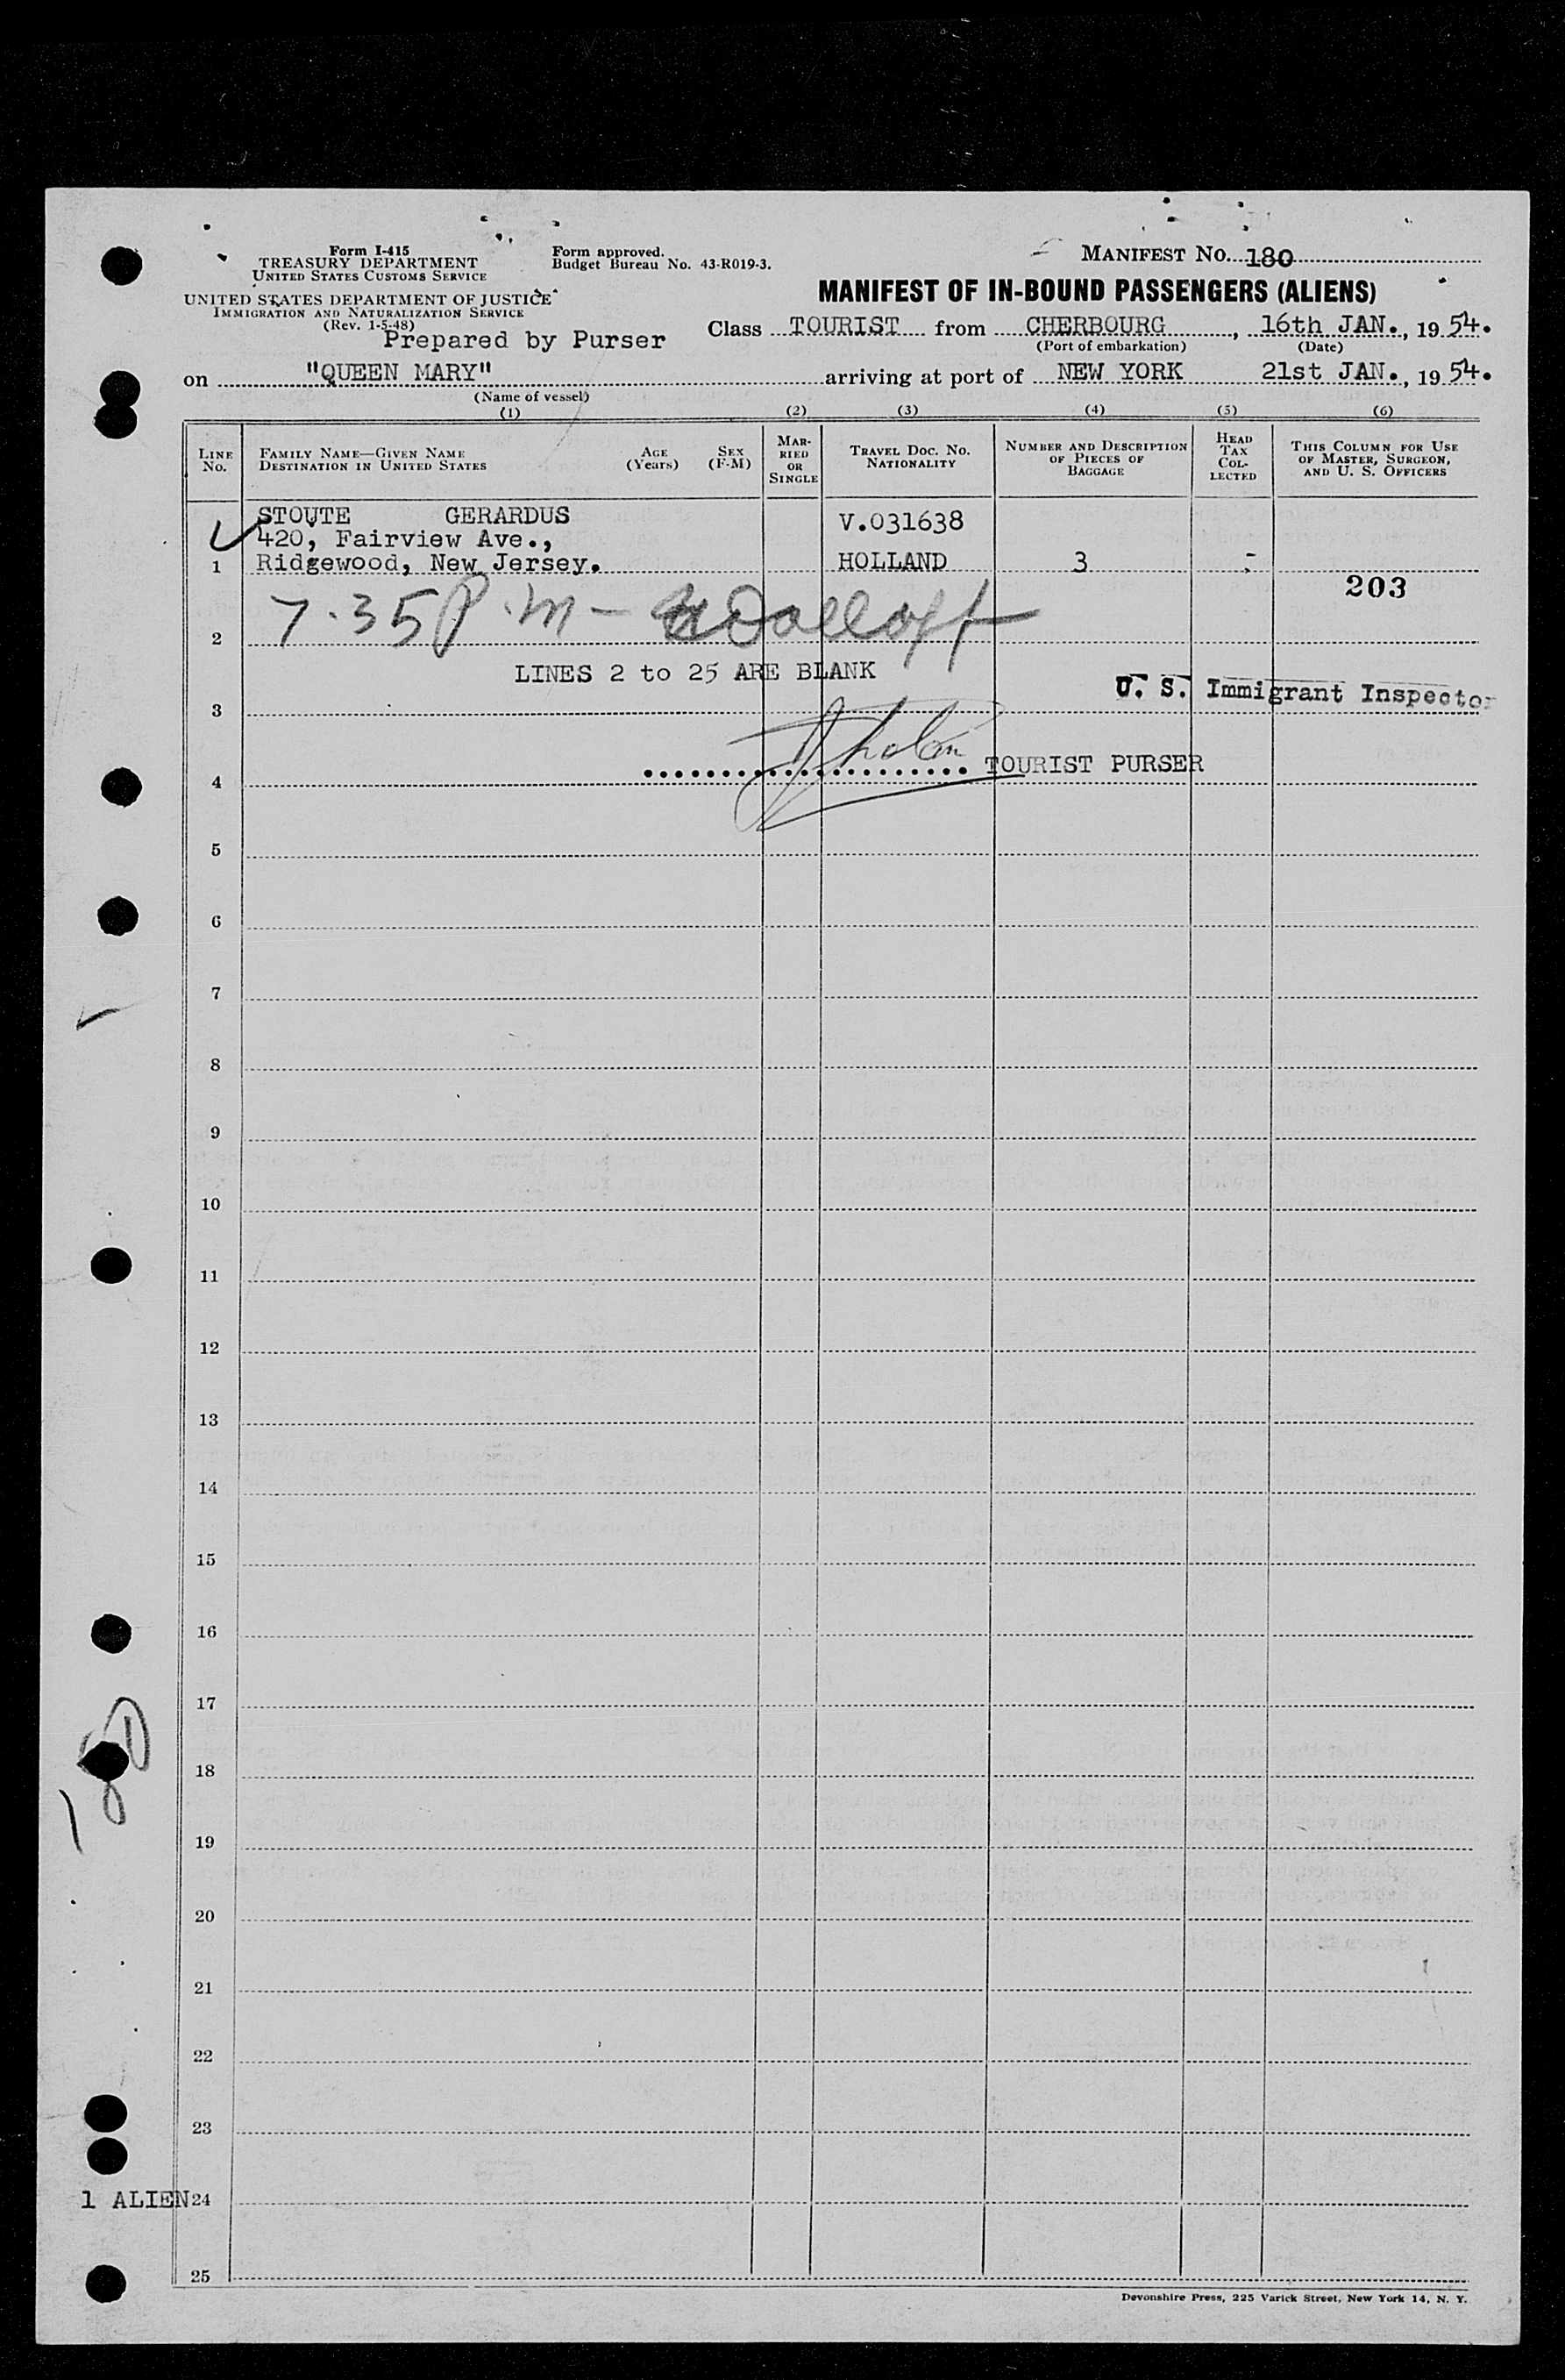 Form I-415
TREASURY DEPARTMENT
UNITED STATES CUSTOMS SERVICE
UNITED STATES DEPARTMENT OF JUSTICE
IMMIGRATION AND NATURALIZATION SERVICE
(Rev. 1-5-48)
Prepared by Purser
Form approved.
Budget Bureau No. 43-R019-3.
MANIFEST No. 180
MANIFEST OF IN-BOUND PASSENGERS (ALIENS)
Class TOURIST from CHERBOURG, 16th JAN., 1954.
(Port of embarkation) (Date)
on "QUEEN MARY" arriving at port of NEW YORK 21st JAN., 1954.
(Name of vessel)
(1) (2) (3) (4) (5) (6)
LINE No. FAMILY NAME—GIVEN NAME DESTINATION IN UNITED STATES AGE (Years) SEX (F-M) MARRIED OR SINGLE TRAVEL DOC. NO. NATIONALITY NUMBER AND DESCRIPTION OF PIECES OF BAGGAGE HEAD TAX COLLECTED THIS COLUMN FOR USE OF MASTER, SURGEON, AND U. S. OFFICERS
STOUTE GERARDUS V.031638
420, Fairview Ave.,
1 Ridgewood, New Jersey. HOLLAND 3 -
203
7.35 P.M -
2
LINES 2 to 25 ARE BLANK
U. S. Immigrant Inspector
3
TOURIST PURSER
4
5
6
7
8
9
10
11
12
13
14
15
16
17
180
18
19
20
21
22
23
1 ALIEN 24
25
Devonshire Press, 225 Varick Street, New York 14, N. Y.